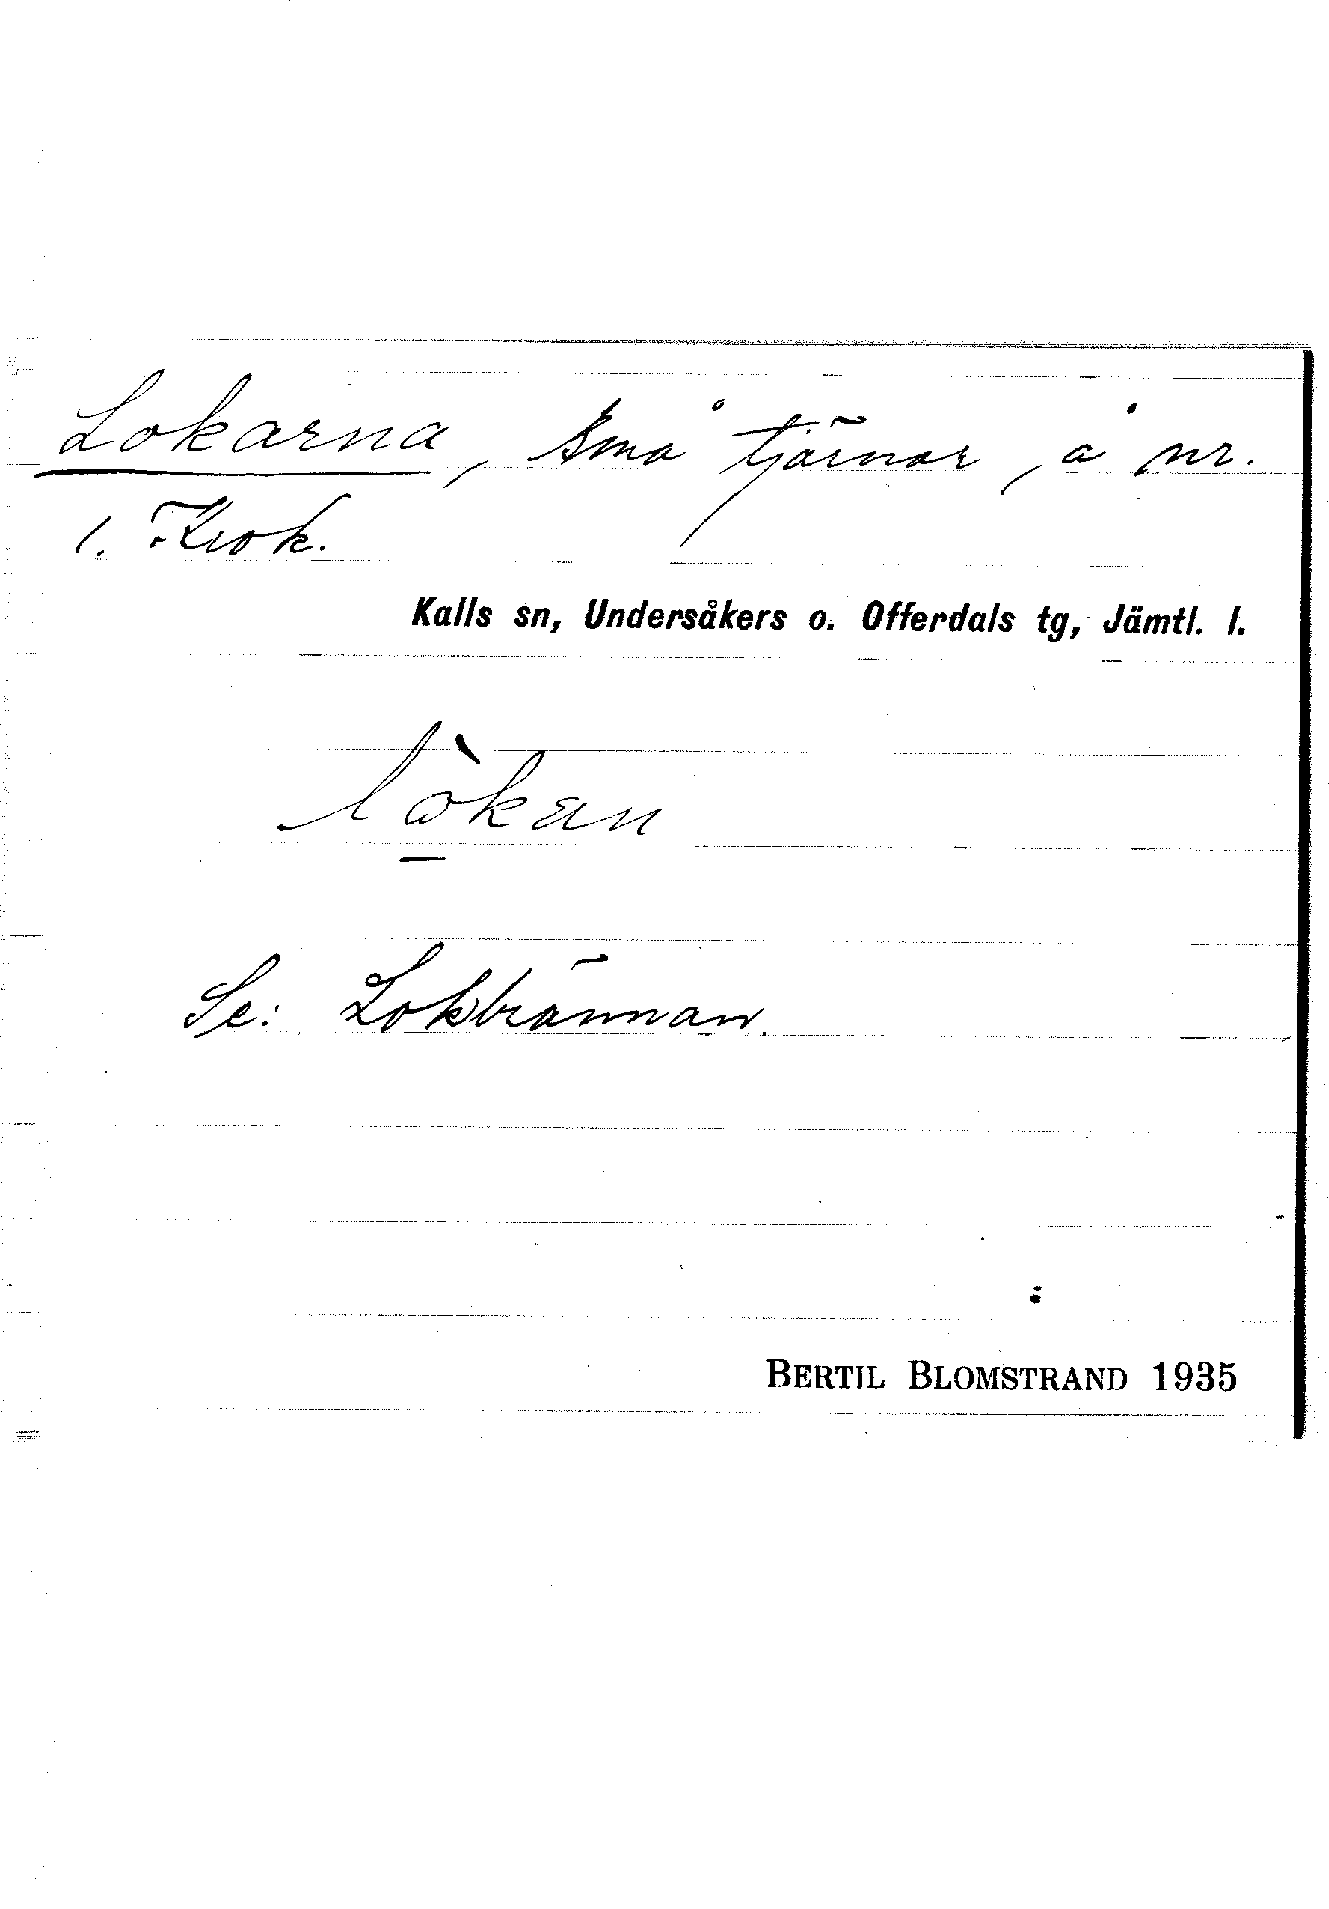 Lokarna, små tjärnar, å nr.
1. Krok.
Kalls sn, Undersåkers o. Offerdals tg, Jämtl. l.
lò̠kan
Se: Lokbrännan.
BERTIL BLOMSTRAND 1935